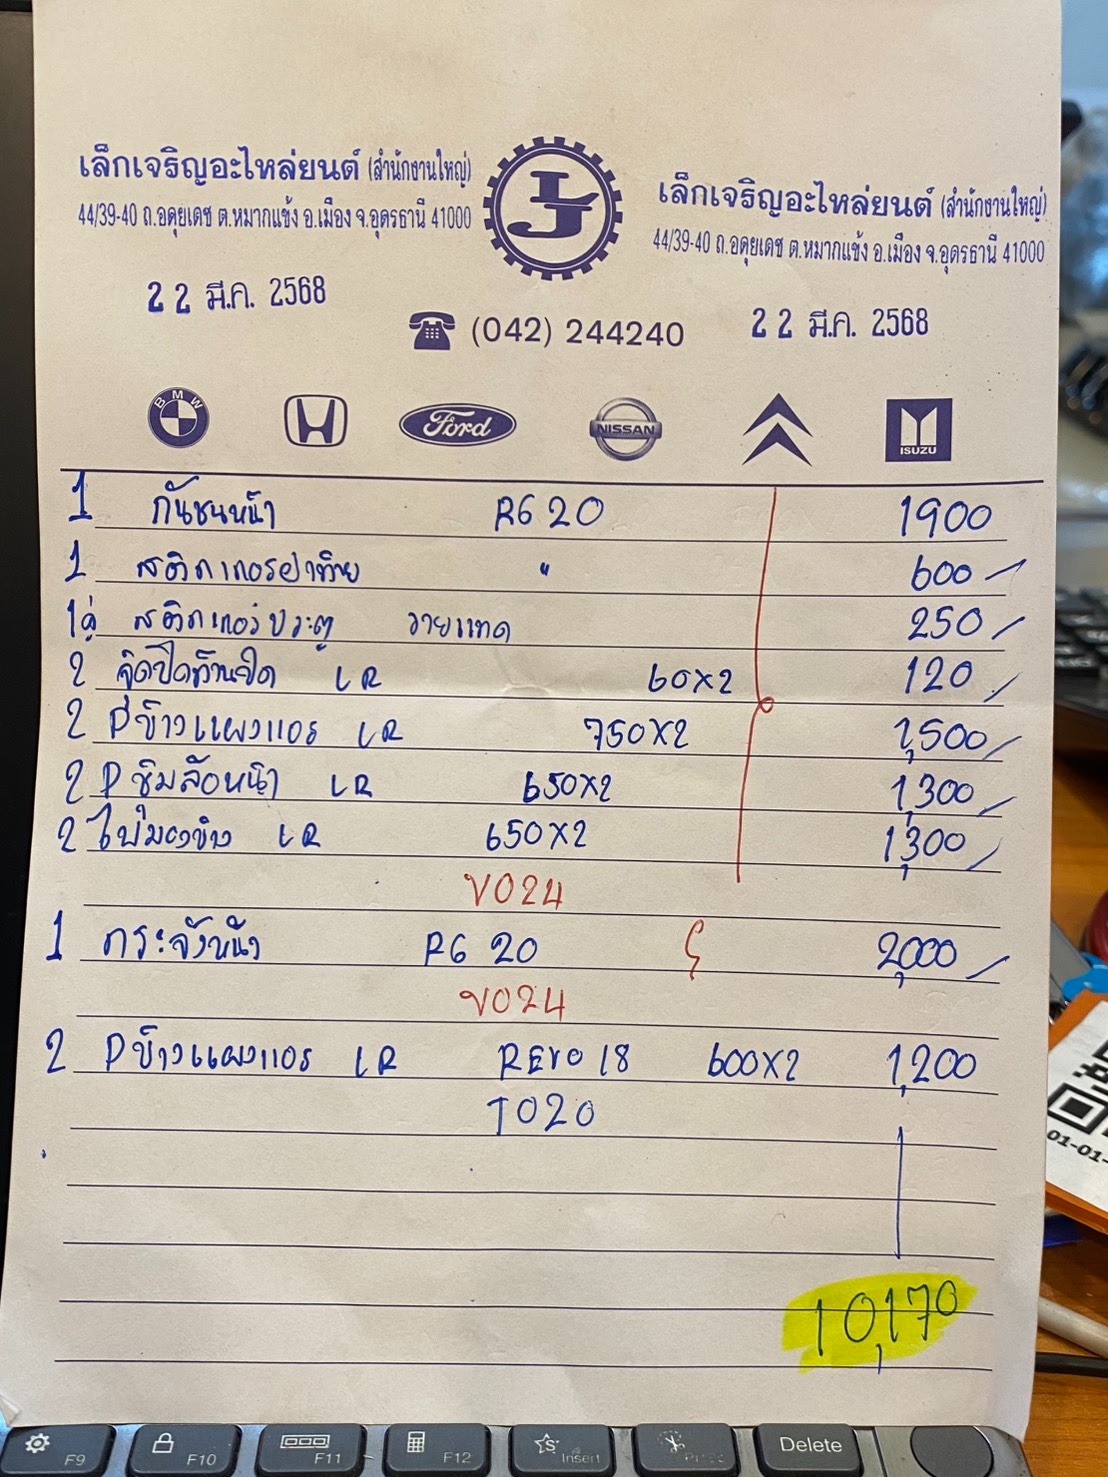 เล็กเจริญอะไหล่ยนต์ (สำนักงานใหญ่)
44/39-40 ถ.อดุยเดช ต.หมากแข้ง อ.เมือง จ.อุดรธานี 41000
22 มี.ค. 2568
LJ
เล็กเจริญอะไหล่ยนต์ (สำนักงานใหญ่)
44/39-40 ถ.อดุยเดช ต.หมากแข้ง อ.เมือง จ.อุดรธานี 41000
22 มี.ค. 2568
(042) 244240
BMW Ford NISSAN ISUZU
1 กันชนหน้า RG 20 1900
1 สติกเกอร์ฝาท้าย " 600
1คู่ สติกเกอร์ประตู วายแทด 250
2 LR 60x2 120
2 Pข้างแผงแอร์ LR 750x2 1,500
2 Pซิมล้อหน้า LR 650x2 1,300
2 ไฟมองข้าง LR 650x2 1,300
V024
1 กระจังหน้า RG 20 2,000
V024
2 Pข้างแผงแอร์ LR REVO 18 600x2 1,200
T020
10,170
01-01-
F9 F10 F11 F12 Insert Delete